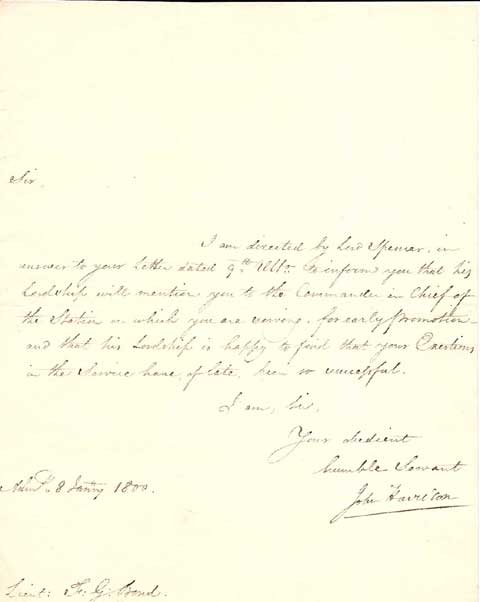 Sir,
I am directed by Lord Spencer, in
answer to your Letter dated 9th Ulto. to inform you that his
Lordship will mention you to the Commander in Chief of
the Station on which you are serving, for early promotion
and that his Lordship is happy to find that your Exertions
in the Service have, of late, been so successful.
I am, Sir,
Your obedient
humble Servant
John Harrison
Admty. 8 Janry 1800.
Lieut: F. G. Bond.